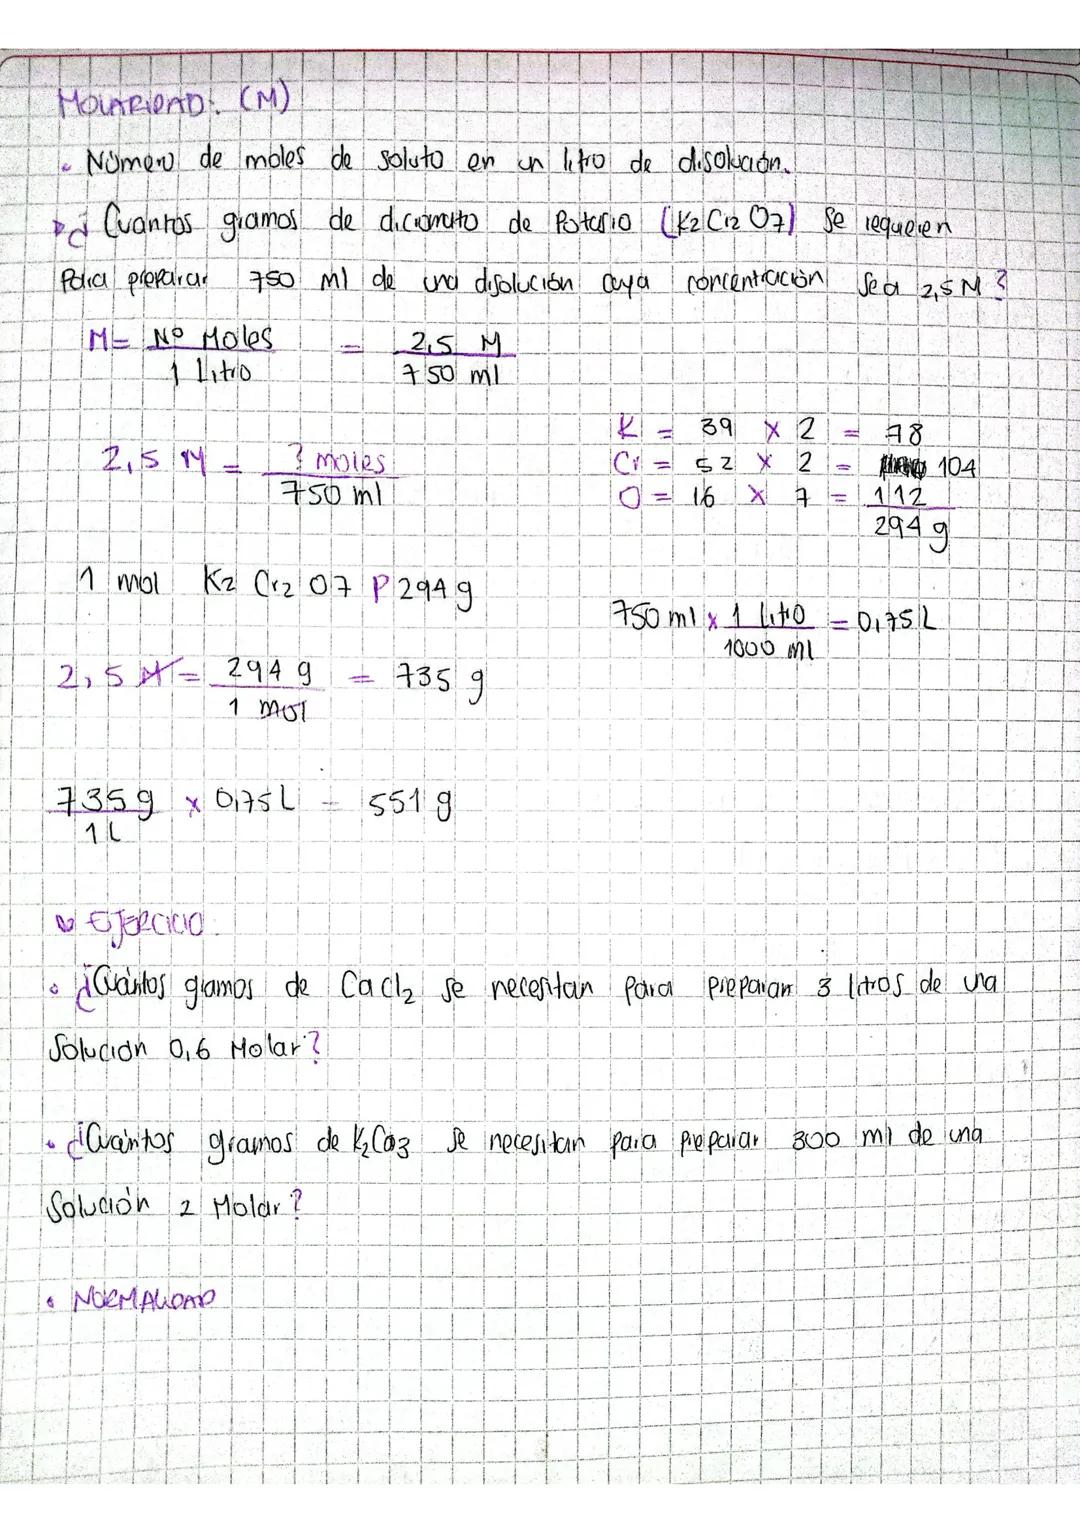 MOLARIDAD: (M)
• Número de moles de soluto en un litro de disolución.
¿Cuantos gramos de dicromato de Potasio (K2 Cr2 O7) Se requieren
Para preparar 750 ml de una disolución cuya concentración Sea 2,5 M?
M= Nº Moles = 2,5 M
1 Litro 750 ml
K = 39 x 2 = 78
2,5 M = ? moles Cr = 52 x 2 = 104
750 ml O = 16 x 7 = 112
294 g
1 mol K2 Cr2 O7 P 294 g
750 ml x 1 Litro = 0,75 L
1000 ml
2,5 M = 294 g = 735 g
1 mol
735 g x 0,75 L = 551 g
1 L
EJERCICIO.
• ¿Cuántos gramos de CaCl2 se necesitan para preparar 3 litros de una
Solución 0,6 Molar?
• ¿Cuántos gramos de K2Co3 Se necesitan para preparar 300 ml de una
Solución 2 Molar?
• NORMALIDAD